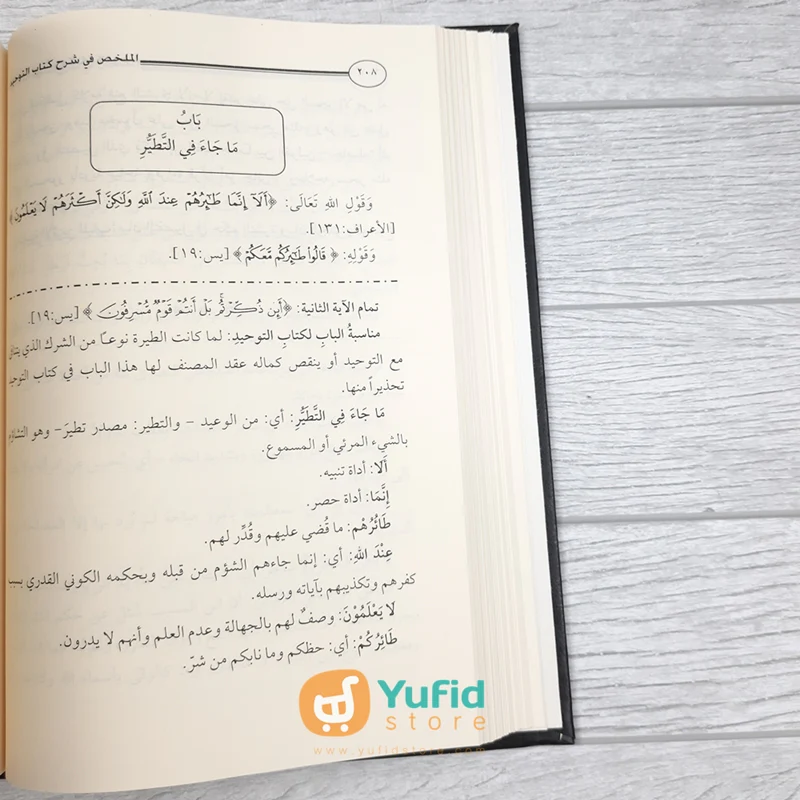 الملخص في شرح كتاب التوحيد
٢٠٨
بَابُ
مَا جَاءَ فِي التَّطَيُّرِ
وَقَوْلِ اللهِ تَعَالَى: ﴿أَلَآ إِنَّمَا طَٰٓئِرُهُمْ عِندَ ٱللَّهِ وَلَٰكِنَّ أَكْثَرَهُمْ لَا يَعْلَمُونَ﴾
[الأعراف: ١٣١].
وَقَوْلِهِ: ﴿قَالُوا۟ طَٰٓئِرُكُم مَّعَكُمْ﴾ [يس: ١٩].
تمام الآية الثانية: ﴿أَئِن ذُكِّرْتُم بَلْ أَنتُمْ قَوْمٌ مُّسْرِفُونَ﴾ [يس: ١٩].
مناسبةُ البابِ لكتابِ التوحيدِ: لما كانت الطيرة نوعًا من الشرك الذي
مع التوحيد أو ينقص كماله عقد المصنف لها هذا الباب في كتاب التوحيد
تحذيراً منها.
مَا جَاءَ فِي التَّطَيُّرِ: أي: من الوعيد – والتطير: مصدر تطيرَ – وهو التشاؤم
بالشيء المرئي أو المسموع.
أَلَا: أداة تنبيه.
إِنَّمَا: أداة حصر.
طَائِرُهُم: ما قُضي عليهم وقُدِّر لهم.
عِنْدَ اللهِ: أي: إنما جاءهم الشؤم من قبله وبحكمه الكوني القدري بسبب
كفرهم وتكذيبهم بآياته ورسله.
لا يَعْلَمُوْنَ: وصفٌ لهم بالجهالة وعدم العلم وأنهم لا يدرون.
طَائِرُكُمْ: أي: حظكم وما نابكم من شرّ.
Yufid
store
www.yufidstore.com